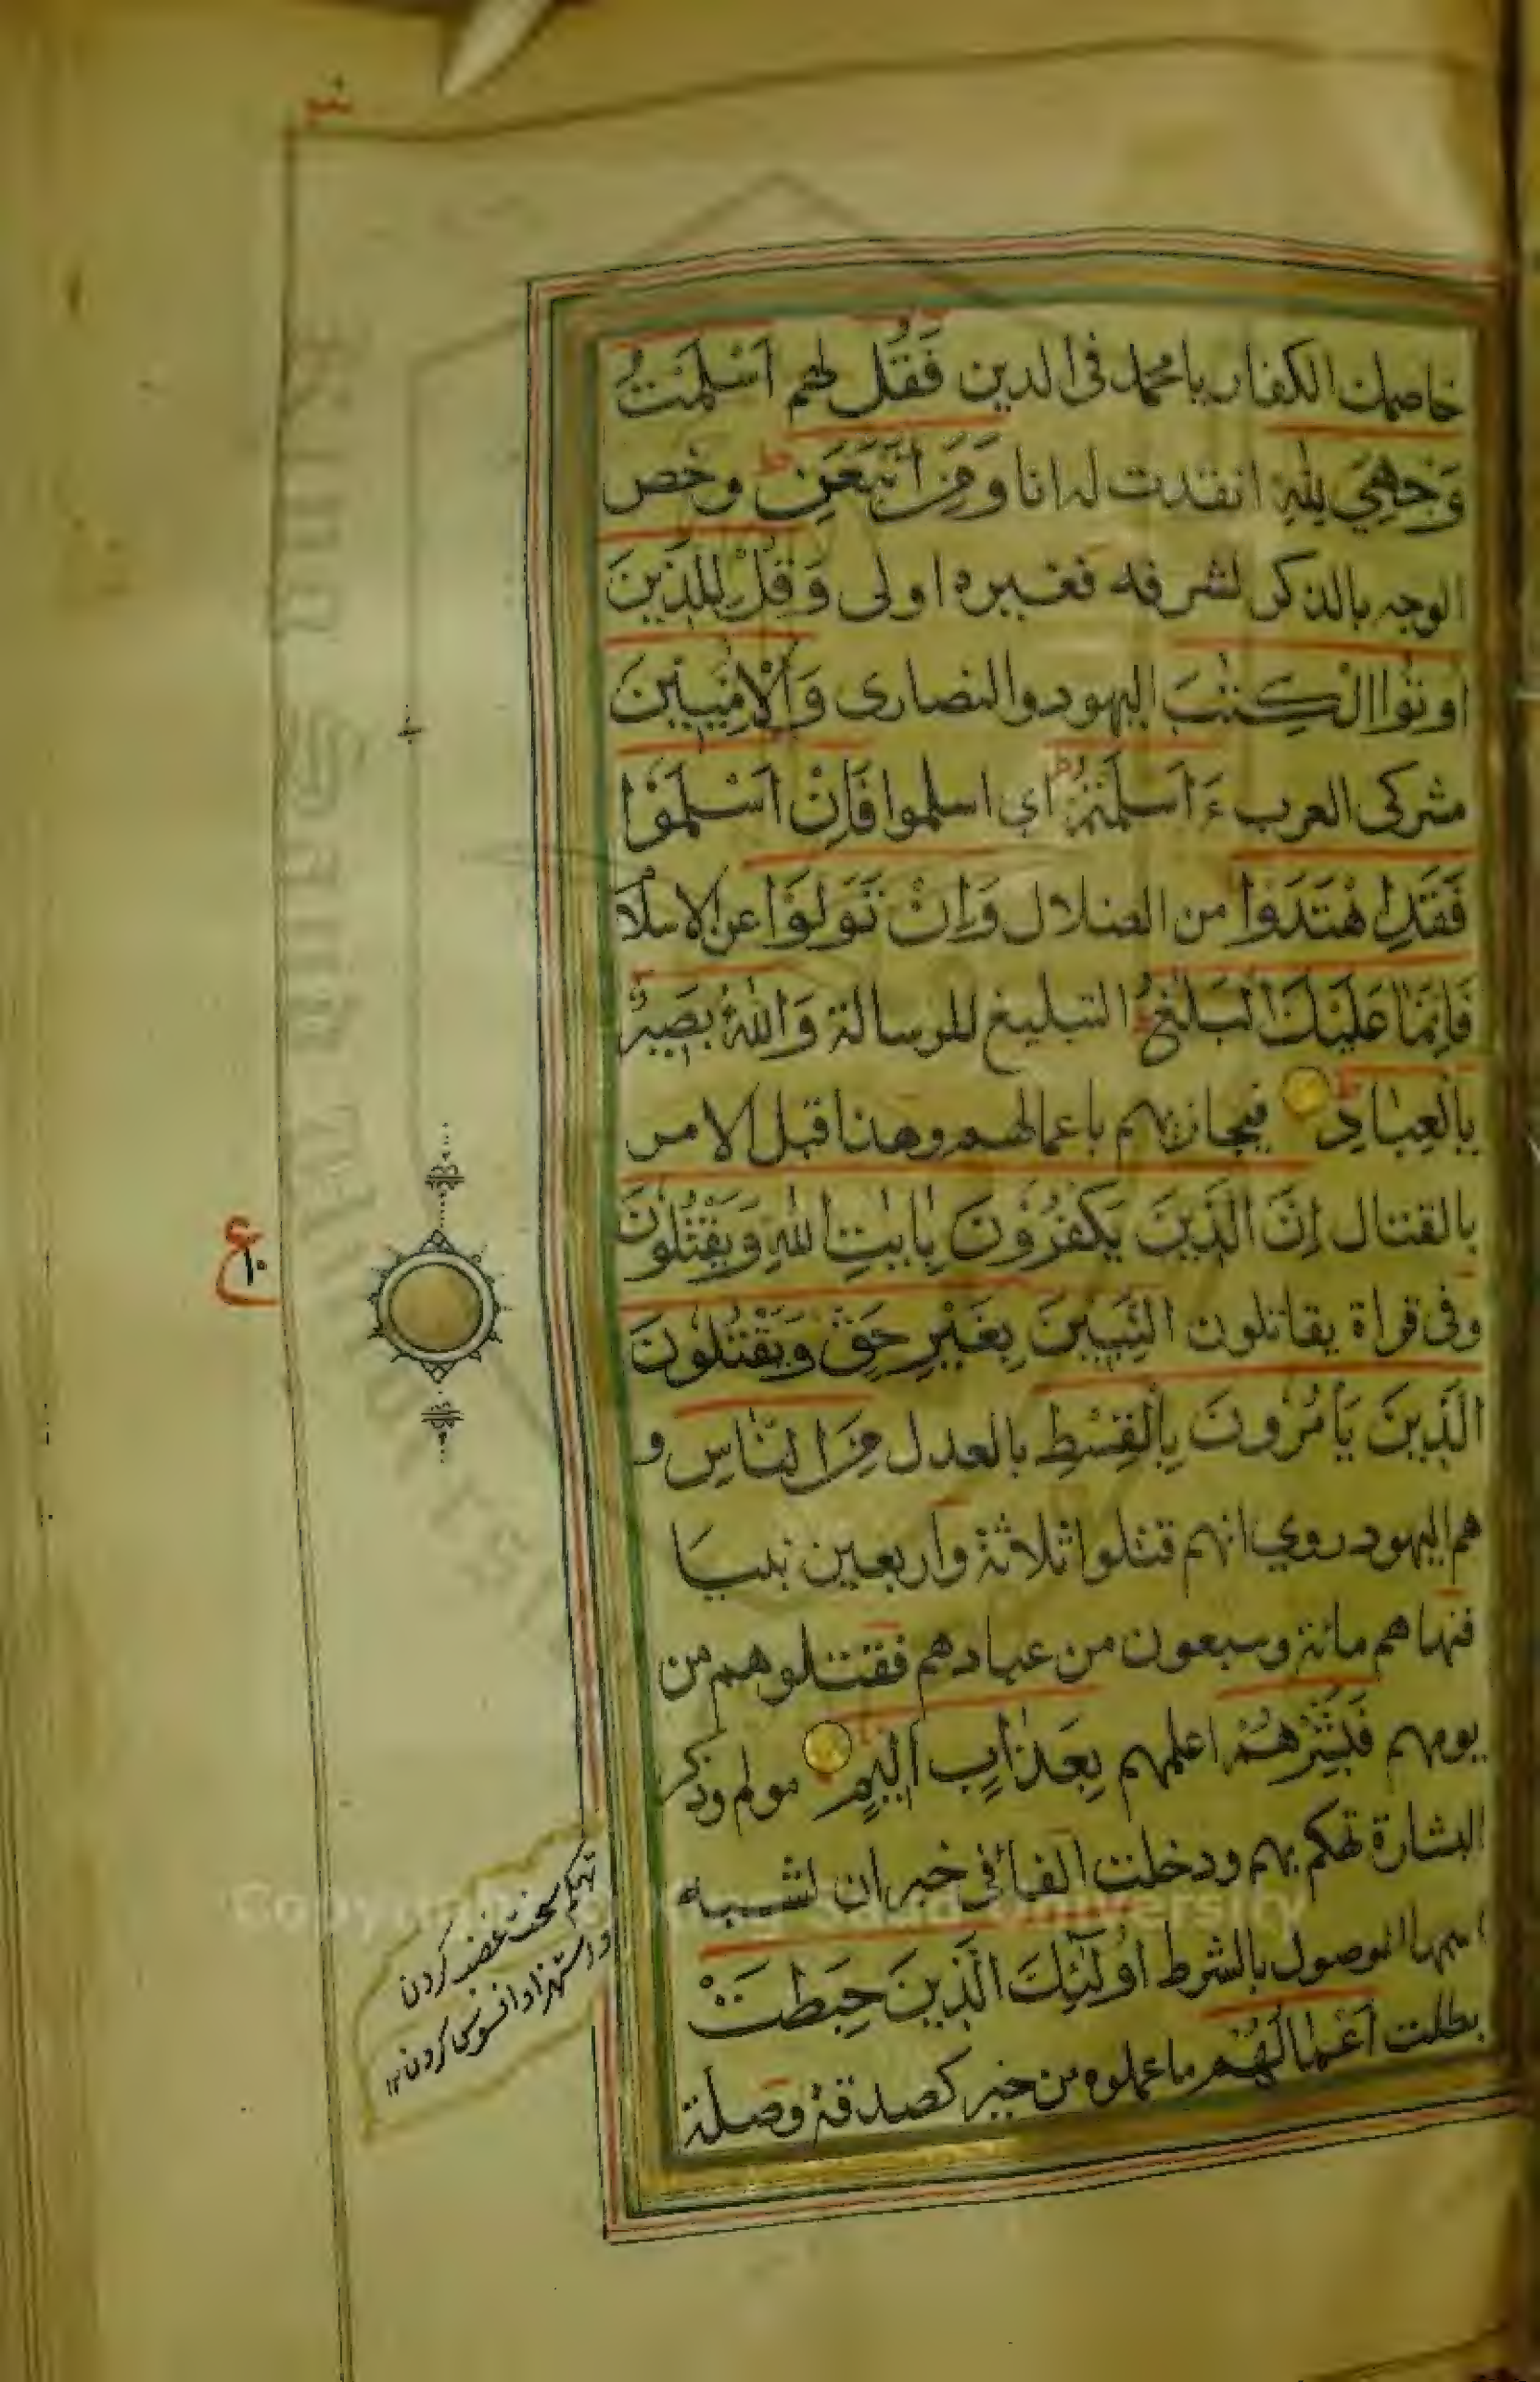 خاصمك الكفار يا محمد فى الدين فَقُل لهم اَسْلَمْتُ
وَجْهِيَ لِلّٰهِ انقدت له انا وَمَنِ اتَّبَعَنِ ط وخص
الوجه بالذكر لشرفه فغيره اولى وَقُلْ لِلَّذِينَ
اُوتُوا الْكِتٰبَ اليهود والنصارى وَالْاُمِّيِّينَ
مشركى العرب ءَاَسْلَمْتُمْ ط اى اسلموا فَاِنْ اَسْلَمُوْا
فَقَدِ اهْتَدَوْا من الضلال وَاِنْ تَوَلَّوْا عن الاسلام
فَاِنَّمَا عَلَيْكَ الْبَلٰغُ التبليغ للرسالة وَاللّٰهُ بَصِيرٌ
بِالْعِبَادِ فيجازيهم باعمالهم وهذا قبل الامر
بالقتال اِنَّ الَّذِينَ يَكْفُرُوْنَ بِاٰيٰتِ اللّٰهِ وَيَقْتُلُوْنَ
وفى قراة يقاتلون النَّبِيّٖنَ بِغَيْرِ حَقٍّ وَيَقْتُلُوْنَ
الَّذِينَ يَأْمُرُونَ بِالْقِسْطِ بالعدل مِنَ النَّاسِ و
هم اليهود روي انهم قتلوا ثلاثة واربعين نبيا
فنهاهم مائة وسبعون من عبادهم فقتلوهم من
يومهم فَبَشِّرْهُمْ اعلمهم بِعَذَابٍ اَلِيْمٍ مولم وذكر
البشارة تهكم بهم ودخلت الفا فى خبر ان لشبه
اسمها الموصول بالشرط اُولٰٓئِكَ الَّذِينَ حَبِطَتْ
بطلت اَعْمَالُهُمْ ما عملوه من خير كصدقة وصلة
ع
١٠
تهكم سخت غضب كردن
و استهزا و افسوس كردن ١٢
Copyright © King Saud University
King Saud University